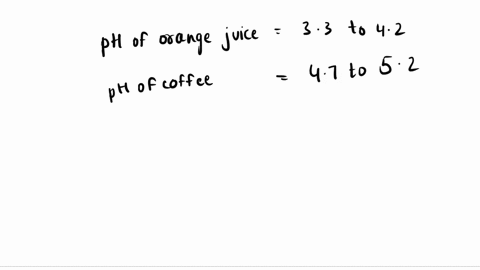 pH of orange juice = 3.3 to 4.2
pH of coffee = 4.7 to 5.2